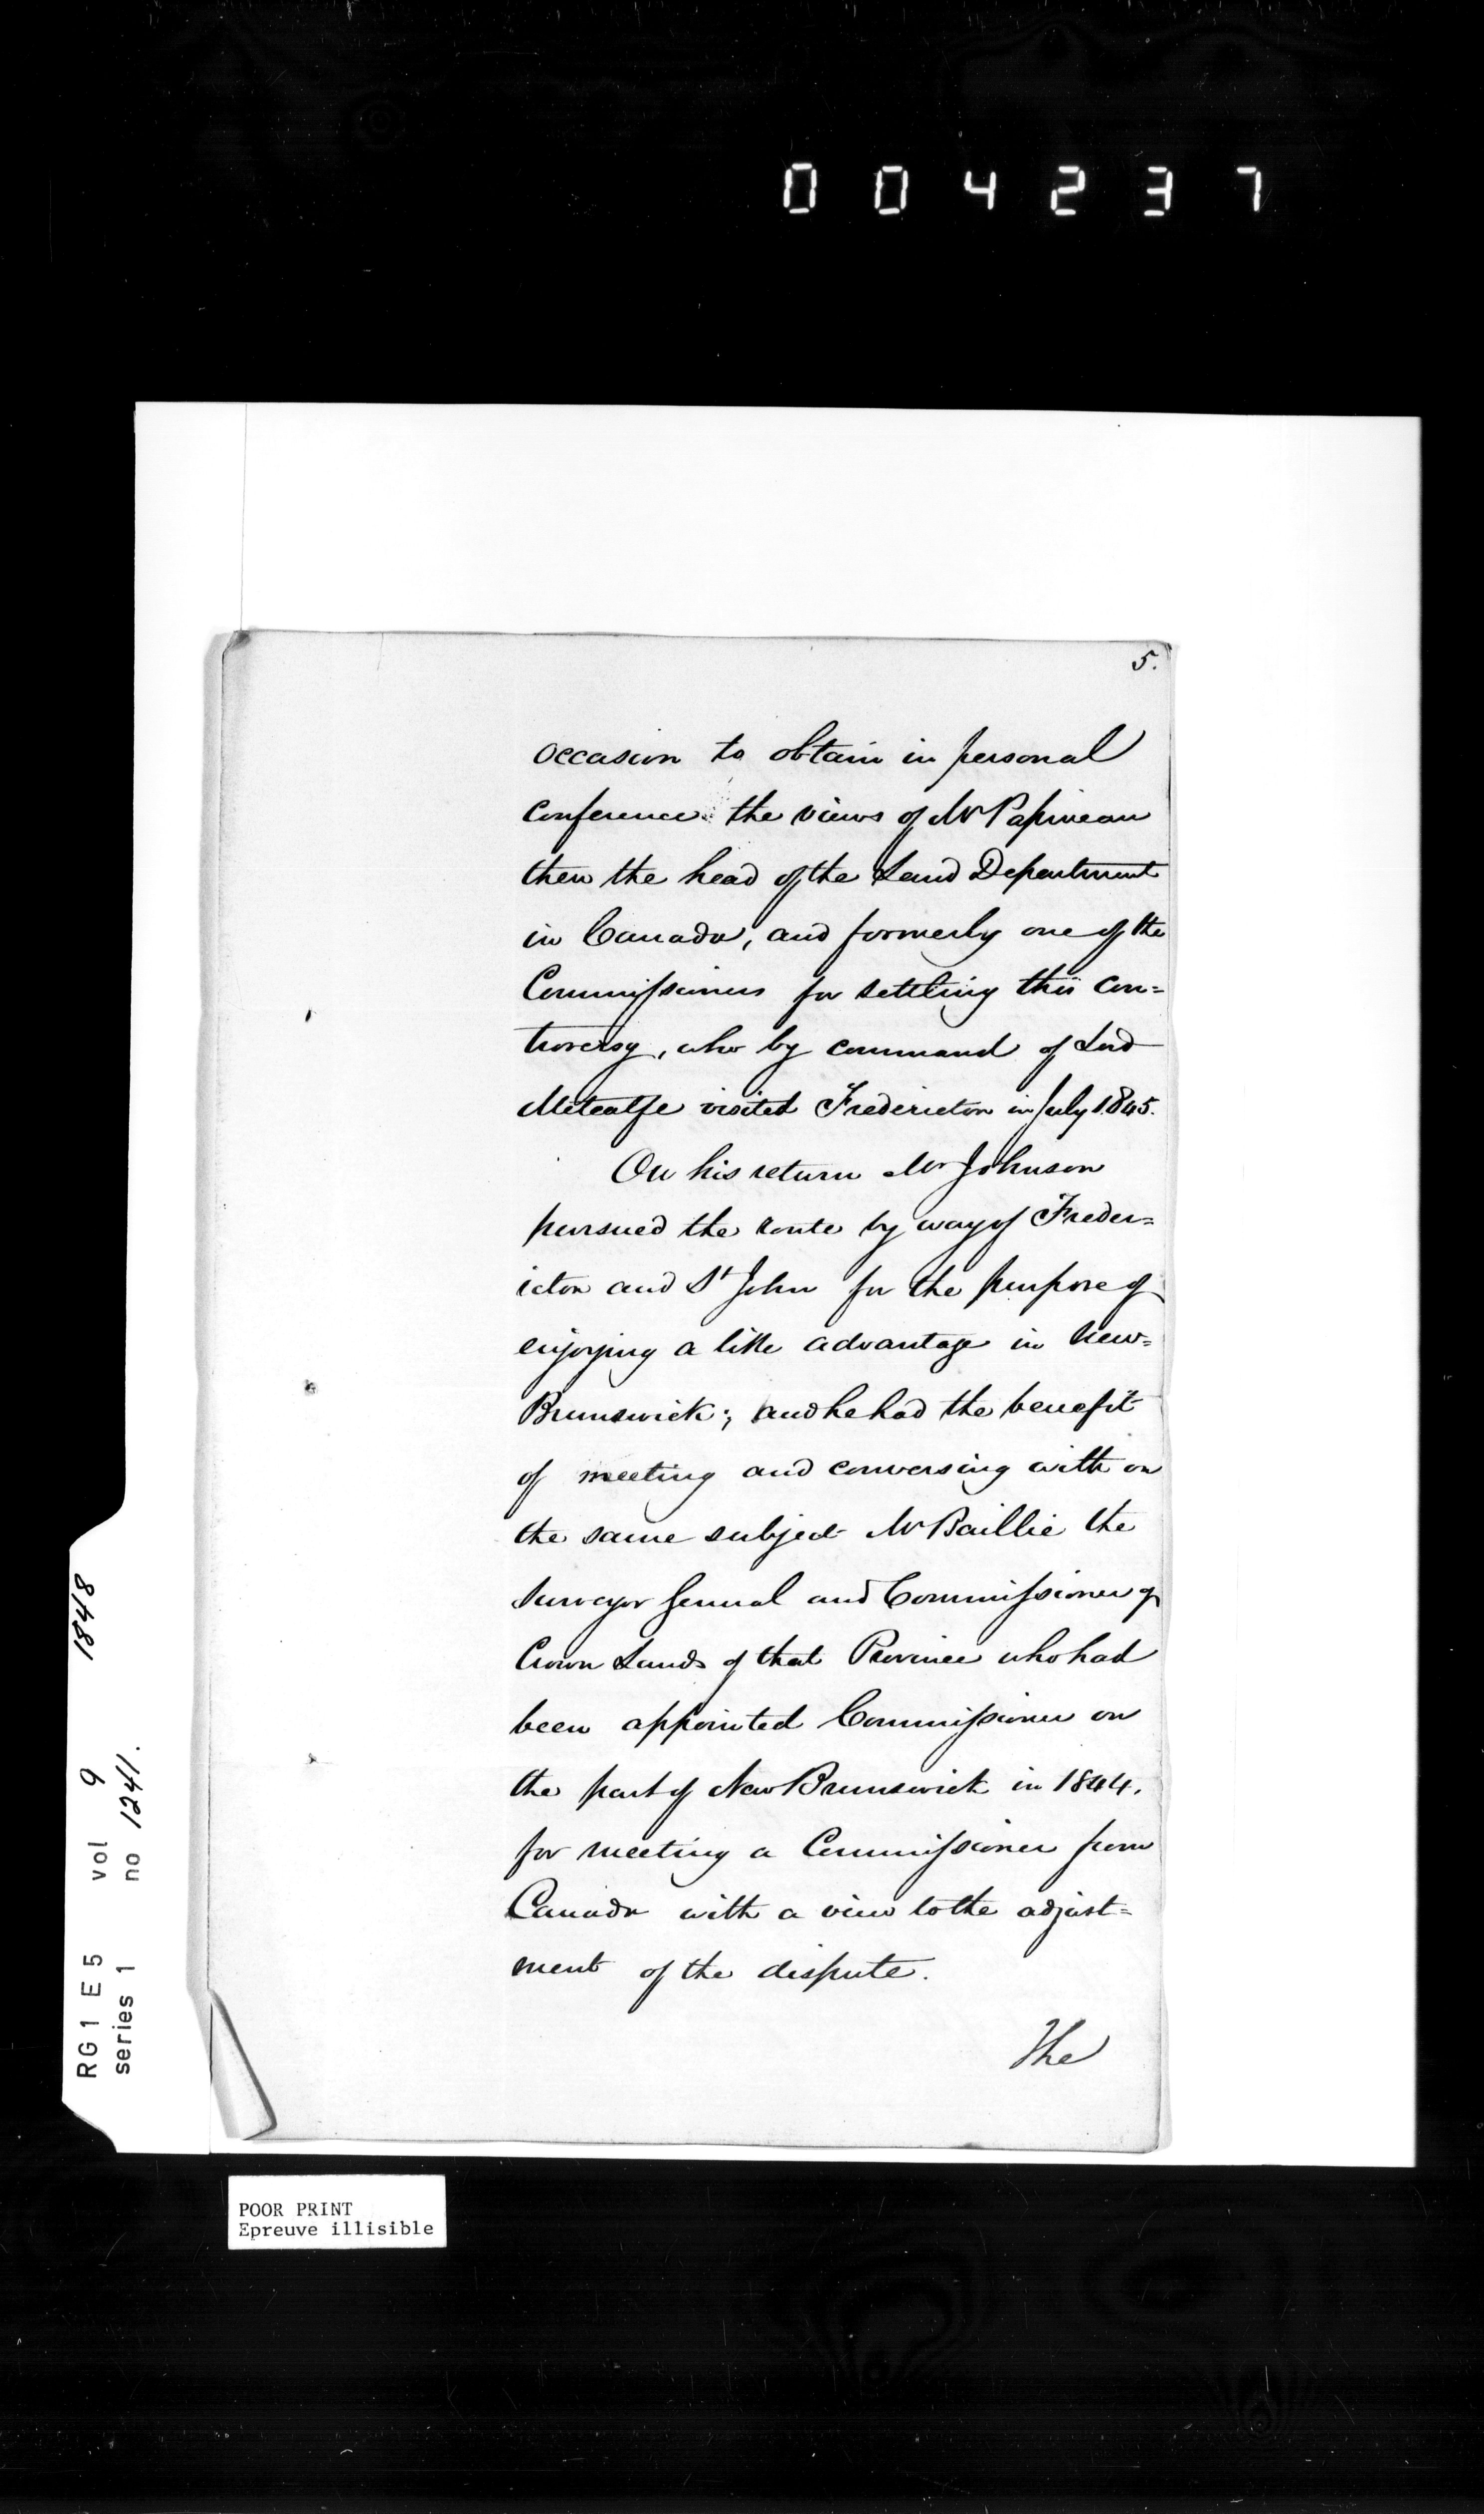 004237
5.
occasion to obtain in personal
conference the views of Mr Papineau
then the head of the Land Department
in Canada, and formerly one of the
Commissioners for settling this con=
troversy, who by command of Lord
Metcalfe visited Fredericton in July 1845.
On his return Mr Johnson
pursued the route by way of Freder=
icton and St John for the purpose of
enjoying a like advantage in New=
Brunswick; and he had the benefit
of meeting and conversing with on
the same subject Mr Baillie the
Surveyor General and Commissioner of
Crown Lands of that Province who had
been appointed Commissioner on
the part of New Brunswick in 1844.
for meeting a Commissioner from
Canada with a view to the adjust=
ment of the dispute.
The
RG 1 E 5 vol 9 1848
series 1 no 1241.
POOR PRINT
Epreuve illisible